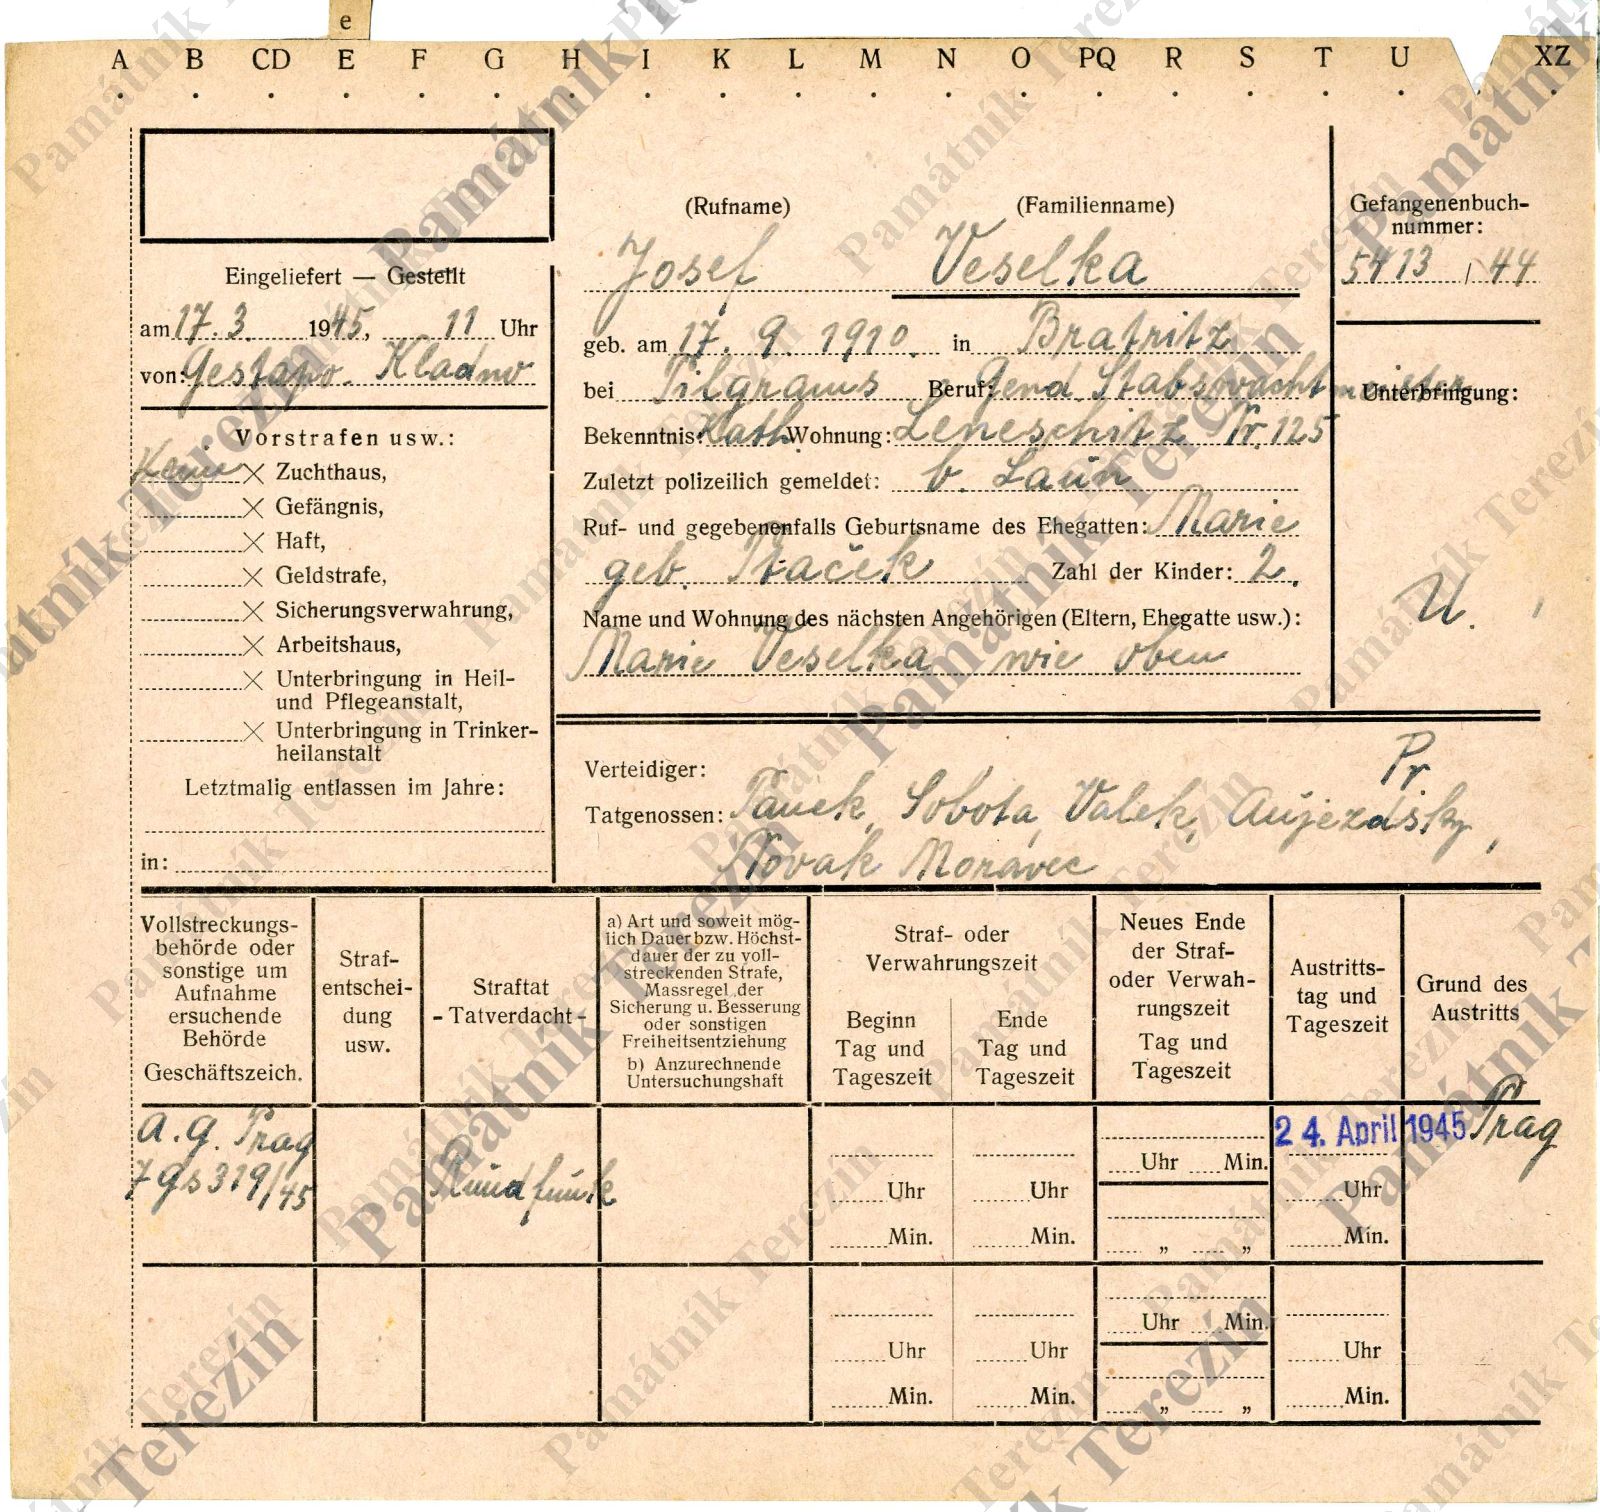 e
A B CD E F G H I K L M N O PQ R S T U XZ
(Rufname) (Familienname)
Josef Veselka
Gefangenenbuch-
nummer:
5413 / 44
Eingeliefert — Gestellt
am 17.3. 1945, 11 Uhr
von: Gestapo Kladno
geb. am 17. 9. 1910. in Bratritz
bei Pilgrams Beruf: Gend. Stabswachtmeister
Bekenntnis: Kath. Wohnung: Leneschitz Nr. 125
Zuletzt polizeilich gemeldet: b. Laun
Ruf- und gegebenenfalls Geburtsname des Ehegatten: Marie
geb. Ptaček Zahl der Kinder: 2.
Name und Wohnung des nächsten Angehörigen (Eltern, Ehegatte usw.):
Marie Veselka wie oben
Unterbringung:
U.
Vorstrafen usw.:
Keine × Zuchthaus,
× Gefängnis,
× Haft,
× Geldstrafe,
× Sicherungsverwahrung,
× Arbeitshaus,
× Unterbringung in Heil-
und Pflegeanstalt,
× Unterbringung in Trinker-
heilanstalt
Letztmalig entlassen im Jahre:
in:
Pr
Verteidiger:
Tatgenossen: Panek, Sobota, Valek, Aujezdsky,
Novak Moravec
Vollstreckungs-
behörde oder
sonstige um
Aufnahme
ersuchende
Behörde
Geschäftszeich.
Straf-
entschei-
dung
usw.
Straftat
- Tatverdacht -
a) Art und soweit mög-
lich Dauer bzw. Höchst-
dauer der zu voll-
streckenden Strafe,
Massregel der
Sicherung u. Besserung
oder sonstigen
Freiheitsentziehung
b) Anzurechnende
Untersuchungshaft
Straf- oder
Verwahrungszeit
Beginn
Tag und
Tageszeit
Ende
Tag und
Tageszeit
Neues Ende
der Straf-
oder Verwah-
rungszeit
Tag und
Tageszeit
Austritts-
tag und
Tageszeit
Grund des
Austritts
A. G. Prag
7 Gs 319/45
Rundfunk
24. April 1945 Prag
Uhr Min.
Uhr Uhr Uhr
Min. Min. „ „ Min.
Uhr Min.
Uhr Uhr Uhr
Min. Min. „ „ Min.
Památník Terezín